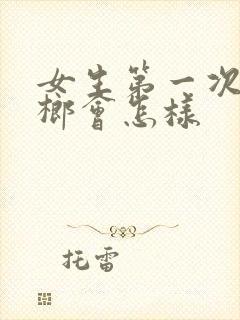 女生第一次
榔會怎樣
托雷